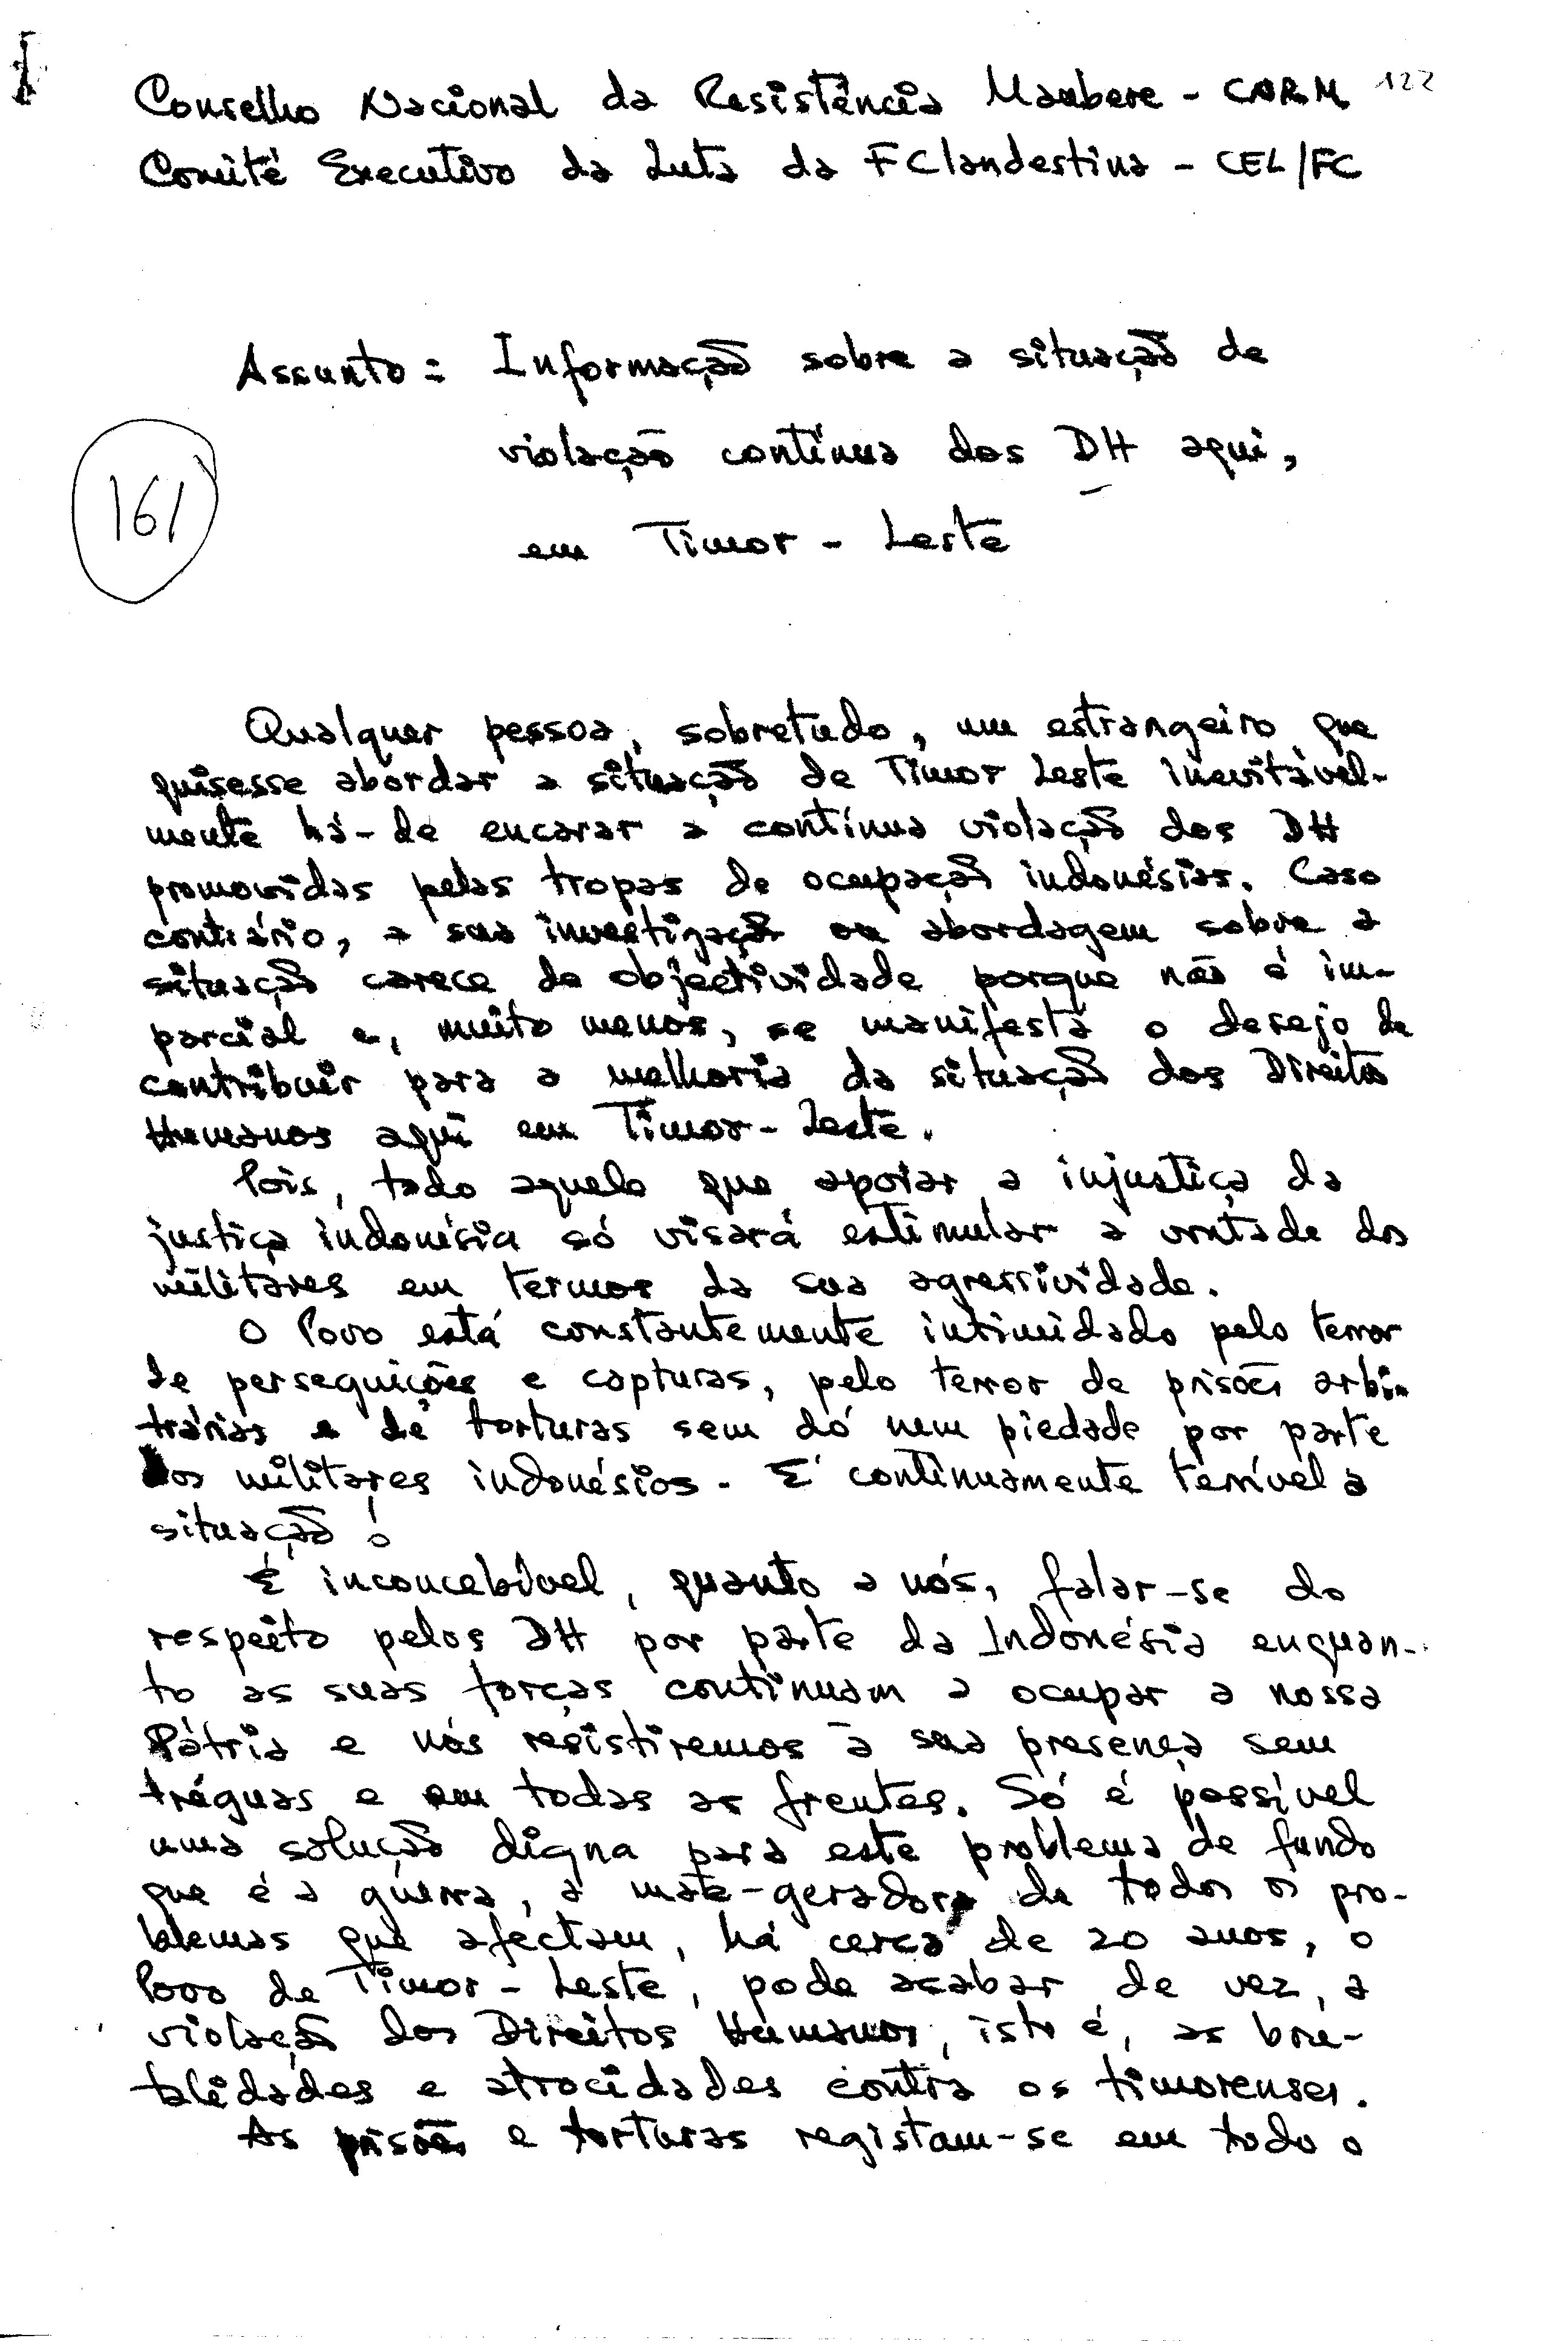 122
Conselho Nacional da Resistência Maubere - CNRM
Comité Executivo da Luta da F Clandestina - CEL/FC
Assunto: Informação sobre a situação de
violação contínua dos DH aqui,
em Timor - Leste
161
Qualquer pessoa, sobretudo, um estrangeiro que
quisesse abordar a situação de Timor Leste inevitável-
mente há-de encarar a contínua violação dos DH
promovidas pelas tropas de ocupação indonésias. Caso
contrário, a sua investigação ou abordagem sobre a
situação carece de objectividade porque não é im-
parcial e, muito menos, se manifesta o desejo de
contribuir para a melhoria da situação dos Direitos
Humanos aqui em Timor - Leste.
Pois, todo aquele que apoiar a injustiça da
justiça indonésia só visará estimular a vontade dos
militares em termos da sua agressividade.
O Povo está constantemente intimidado pelo terror
de perseguições e capturas, pelo terror de prisões arbi-
trárias e de torturas sem dó nem piedade por parte
dos militares indonésios. É continuamente terrível a
situação!
É inconcebível, quanto a nós, falar-se do
respeito pelos DH por parte da Indonésia enquan-
to as suas forças continuam a ocupar a nossa
Pátria e nós resistiremos à sua presença sem
tréguas e em todas as frentes. Só é possível
uma solução digna para este problema de fundo
que é a guerra, a mãe-geradora de todos os pro-
blemas que afectam, há cerca de 20 anos, o
Povo de Timor - Leste, pode acabar de vez, a
violação dos Direitos Humanos, isto é, as bru-
talidades e atrocidades contra os timorenses.
As prisões e torturas registam-se em todo o